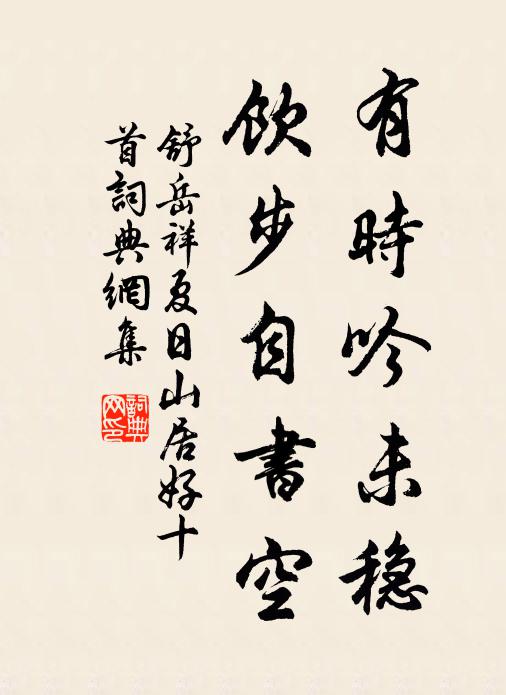 有時吟未穏
飲步自書空
舒岳祥夏日山居好十
首詞典網集
詞典
网印